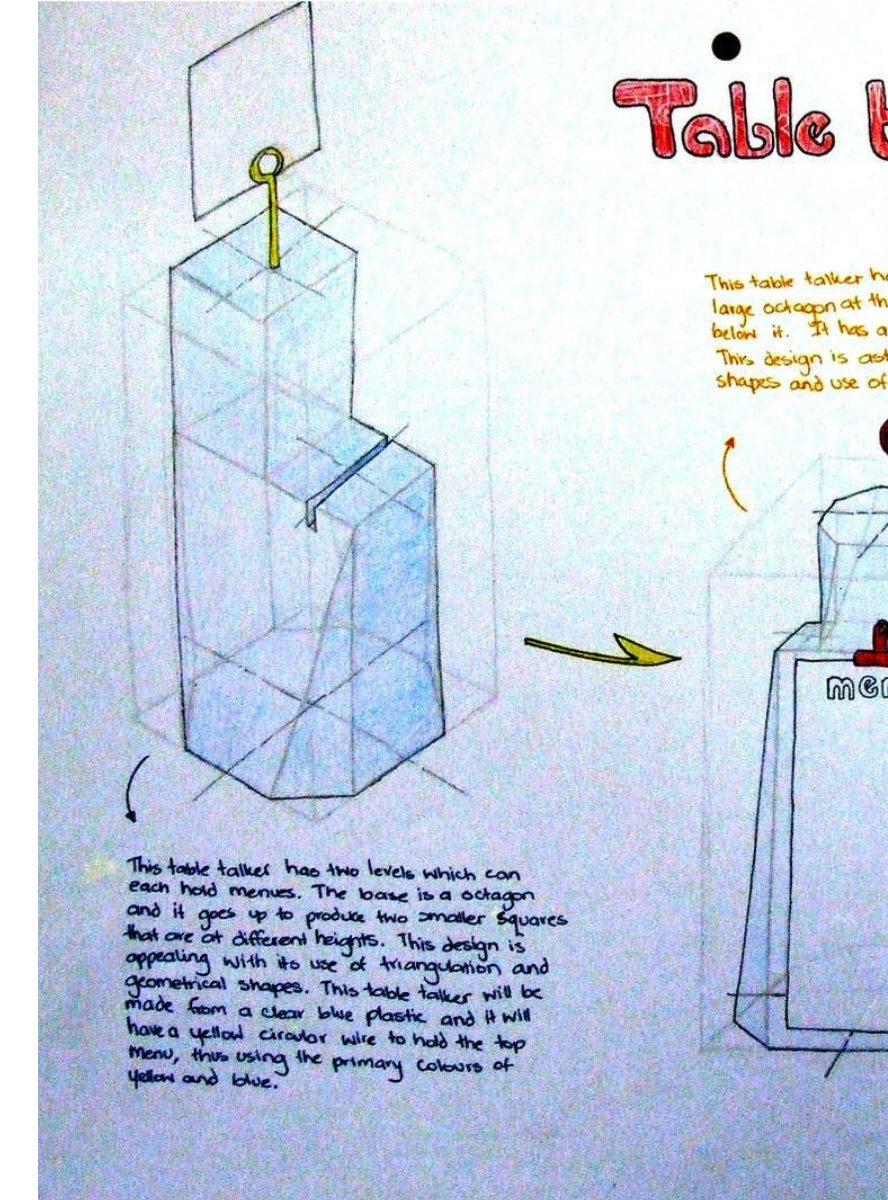 Table
This table talker ha
large octagon at th
below it. It has a
This design is ast
shapes and use of
men
This table talker has two levels which can
each hold menues. The base is a octagon
and it goes up to produce two smaller squares
that are at different heights. This design is
appealing with its use of triangulation and
geometrical shapes. This table talker will be
made from a clear blue plastic and it will
have a yellow circular wire to hold the top
menu, thus using the primary colours of
yellow and blue.